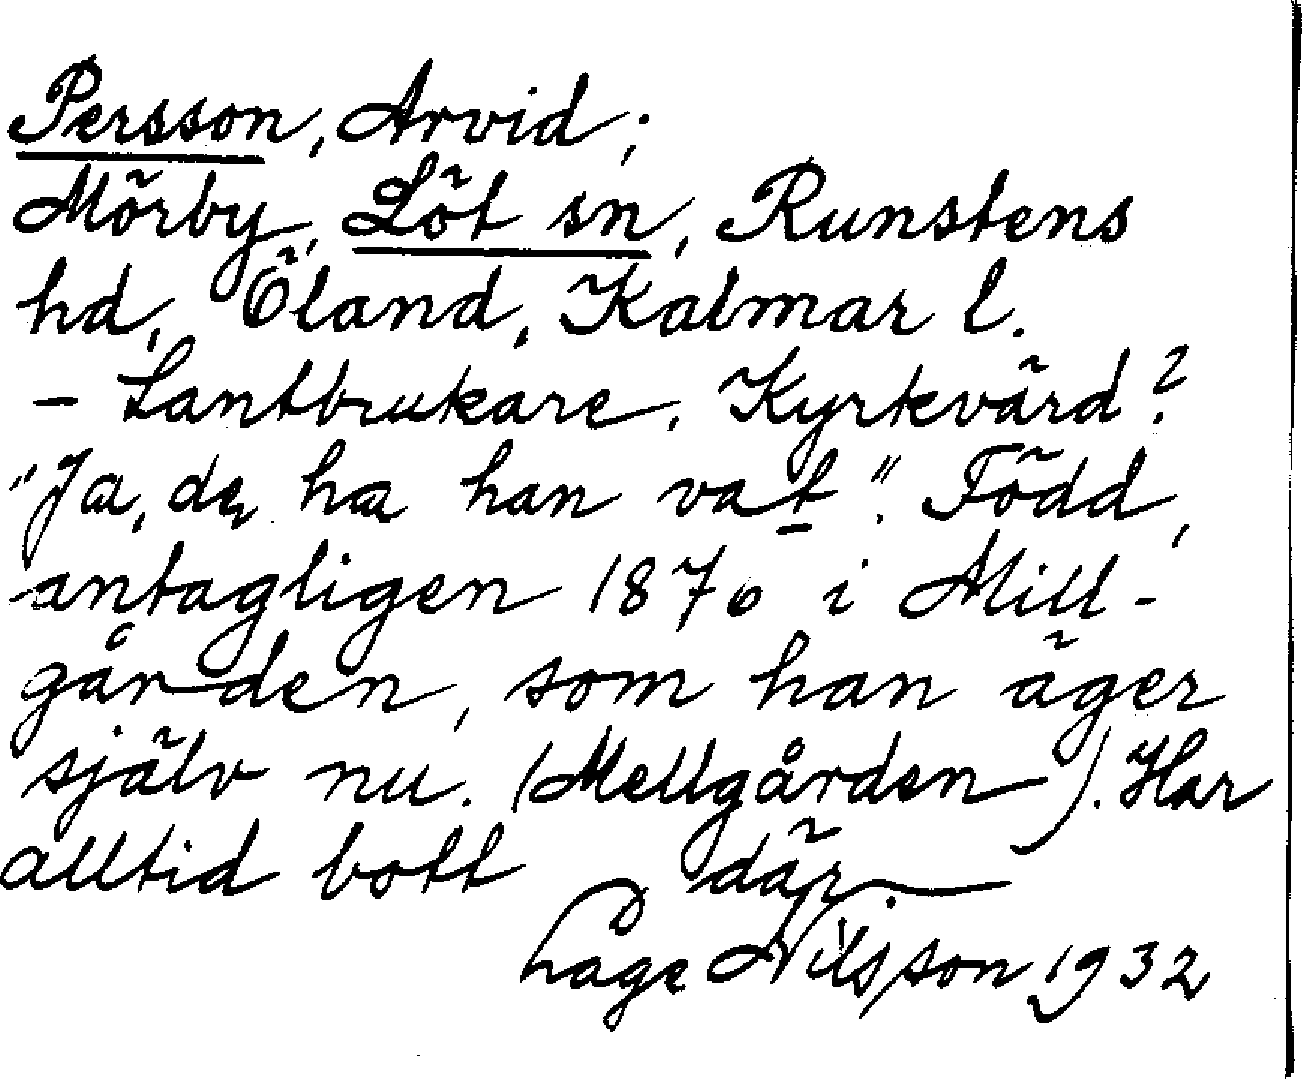 Persson, Arvid;
Mörby, Löt sn, Runstens
hd, Öland, Kalmar l.
- Lantbrukare. Kyrkvärd?
"Ja, dę ha han vat". Född,
antagligen 1876 i Mill-
gården, som han äger
själv nu. (Mellgården). Har
alltid bott där.
Lage Nilsson 1932